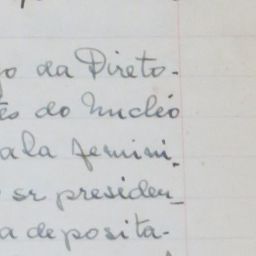 go da Direto-
tes do Nucleo
ala femini-
sr presiden-
a deposita-